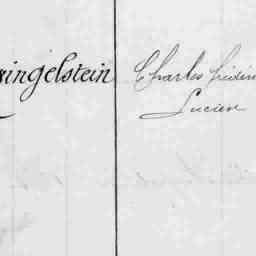 ingelstein Charles Frédéri
Lucien